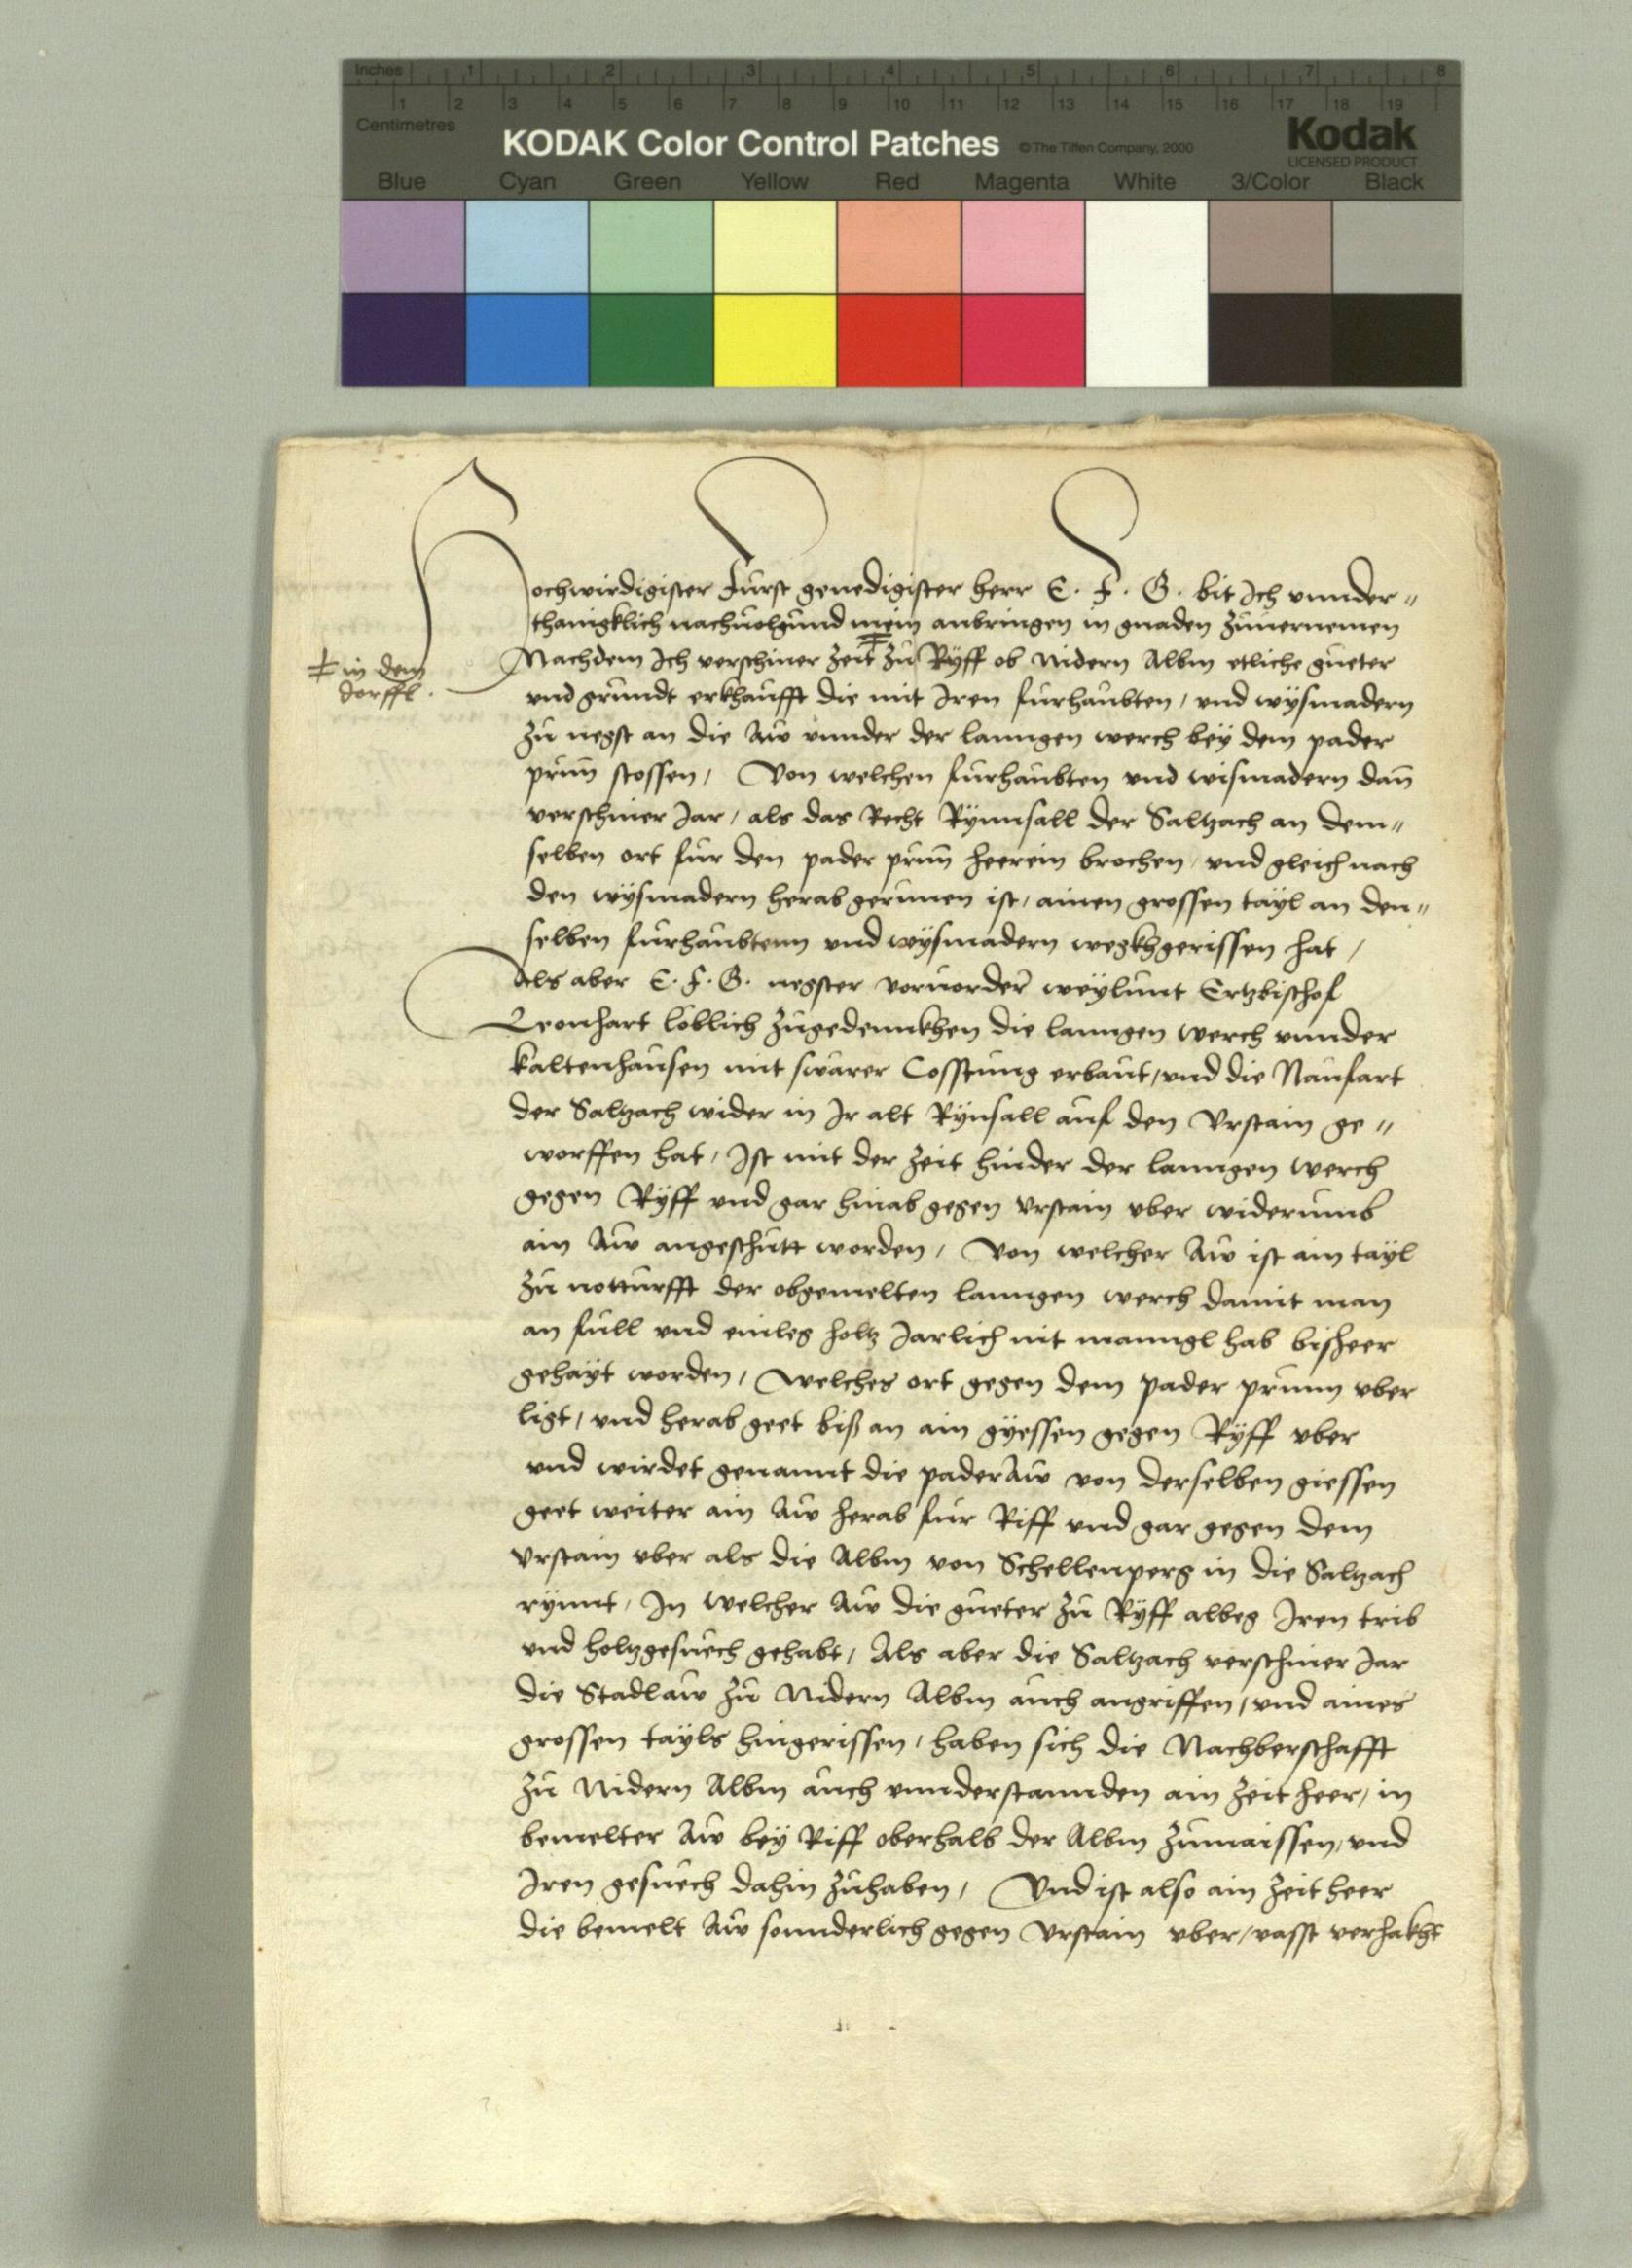 Inches 1 2 3 4 5 6 7 8
1 2 3 4 5 6 7 8 9 10 11 12 13 14 15 16 17 18 19
Centimetres
KODAK Color Control Patches © The Tiffen Company, 2000
Kodak
LICENSED PRODUCT
Blue Cyan Green Yellow Red Magenta White 3/Color Black
Hochwirdigister Furst genedigister herr E. F. G. bit Ich vnnder-
thanigklich nachuolgund mein anbringen in gnaden zuuernemen
Nachdem Ich verschiner zeit zu Ryff ob Nidern Albm etliche gueter
in dem
dorffl.
vnd grundt erkhaufft die mit Iren furhaubten / vnd wysmadern
zu negst an die Aw vnnder der lanngen werch bey dem pader
prun stossen / Von welchen furhaubten vnd wismadern dan
verschiner Jar / als das Recht Rynnsall der Saltzach an dem-
selben ort fur den pader prun heerein brochen / vnd gleich nach
den wysmadern herab gerunen ist / ainen grossen tayl an den-
selben furhaubtenn vnd wysmadern wegkhgerissen hat /
Als aber E. F. G. negster voruorder weylunt Ertzbischof
Leonhart loblich zugedennkhen die lanngen werch vnnder
kaltenhausen mit swarer Cosstung erbaut / vnd die Naufart
der Saltzach wider in Ir alt Rynsall auf den Vrstain ge-
worffen hat / Ist mit der zeit hinder der lanngen werch
gegen Ryff vnd gar hinab gegen vrstain vber widerumb
ain Aw angeschutt worden / Von welcher Aw ist ain tayl
zu notturfft der obgemelten lanngen werch damit man
an full vnd einleg holtz Jarlich nit manngl hab bisheer
gehayt worden / Welches ort gegen dem pader prunn vber
ligt / vnd herab geet biß an ain gyessen gegen Ryff vber
vnd wirdet genannt die paderAw von derselben giessen
geet weiter ain Aw herab fur Riff vnd gar gegen dem
Vrstain vber als die Albm von Schellenperg in die Saltzach
rynnt / In welcher Aw die gueter zu Ryff albeg Iren trib
vnd holtzgesuech gehabt / Als aber die Saltzach verschiner Jar
die Stadlaw zu Nidern Albm auch angriffen / vnd aines
grossen tayls hingerissen / haben sich die Nachberschafft
zu Nidern Albm auch vnnderstannden ain zeit heer / in
bemelter Aw bey Riff oberhalb der Albm zumaissen / vnd
Iren gesuech dahin zuhaben / Vnd ist also ain zeit heer
die bemelt Aw sonnderlich gegen Vrstain vber / vasst verhakht